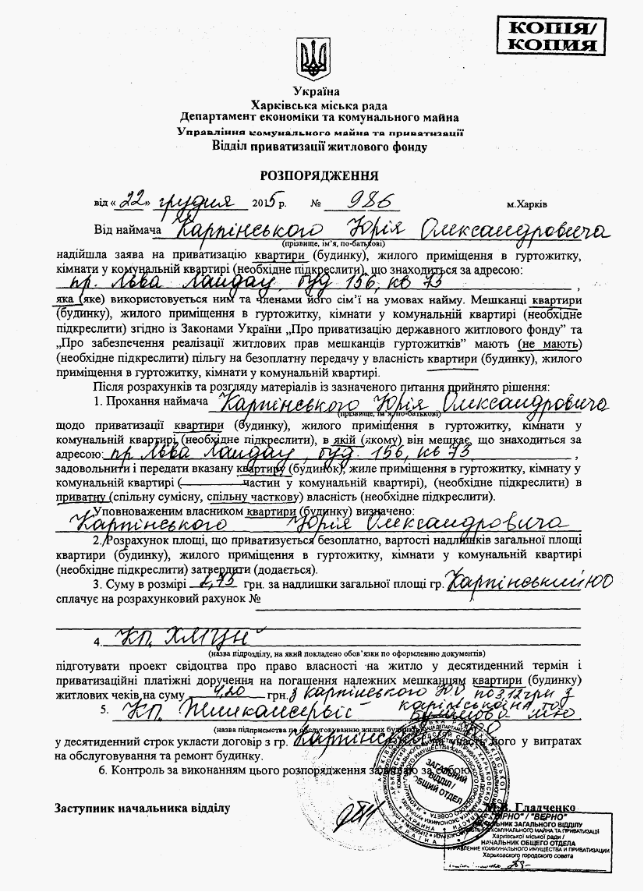 КОПІЯ/
КОПИЯ
Україна
Харківська міська рада
Департамент економіки та комунального майна
Управління комунального майна та приватизації
Відділ приватизації житлового фонду
РОЗПОРЯДЖЕННЯ
від « 22 » грудня 2015 р. № 986 м.Харків
Від наймача Карпінського Юрія Олександровича
(прізвище, ім’я, по-батькові)
надійшла заява на приватизацію квартири (будинку), жилого приміщення в гуртожитку,
кімнати у комунальній квартирі (необхідне підкреслити), що знаходиться за адресою:
пр. Льва Ландау, буд 156, кв 73,
яка (яке) використовується ним та членами його сім’ї на умовах найму. Мешканці квартири
(будинку), жилого приміщення у гуртожитку, кімнати у комунальній квартирі (необхідне
підкреслити) згідно із Законами України „Про приватизацію державного житлового фонду” та
„Про забезпечення реалізації житлових прав мешканців гуртожитків” мають (не мають)
(необхідне підкреслити) пільгу на безоплатну передачу у власність квартири (будинку), жилого
приміщення в гуртожитку, кімнати у комунальній квартирі.
Після розрахунків та розгляду матеріалів із зазначеного питання прийнято рішення:
1. Прохання наймача Карпінського Юрія Олександровича
(прізвище, ім’я, по-батькові)
щодо приватизації квартири (будинку), жилого приміщення в гуртожитку, кімнати у
комунальній квартирі (необхідне підкреслити), в якій (якому) він мешкає, що знаходиться за
адресою: пр. Льва Ландау, буд. 156, кв 73,
задовольнити і передати вказану квартиру (будинок), жиле приміщення в гуртожитку, кімнату у
комунальній квартирі ( частин у комунальній квартирі), (необхідне підкреслити) в
приватну (спільну сумісну, спільну часткову) власність (необхідне підкреслити).
Уповноваженим власником квартири (будинку) визначено:
Карпінського Юрія Олександровича
2. Розрахунок площі, що приватизується безоплатно, вартості надлишків загальної площі
квартири (будинку), жилого приміщення в гуртожитку, кімнати у комунальній квартирі
(необхідне підкреслити) затвердити (додається).
3. Суму в розмірі грн. за надлишки загальної площі гр. Карпінський ЮО
сплачує на розрахунковий рахунок №
4. КП „ХМІЦН”
(назва підрозділу, на який покладено обов’язки по оформленню документів)
підготувати проект свідоцтва про право власності на житло у десятиденний термін і
приватизаційні платіжні доручення на погашення належних мешканцям квартири (будинку)
житлових чеків на суму грн. з Карпінського Ю.О
5. КП „Жилкомсервіс”
(назва підприємства по обслуговування жилих
у десятиденний строк укласти договір з гр. Карпінський у витратах
на обслуговування та ремонт будинку.
6. Контроль за виконанням цього розпорядження
ЗАГАЛЬНИЙ
ВІДДІЛ /
ОБЩИЙ ОТДЕЛ
Заступник начальника відділу Гладченко
"ВІРНО" / "ВЕРНО"
НАЧАЛЬНИК ЗАГАЛЬНОГО ВІДДІЛУ
УПРАВЛІННЯ КОМУНАЛЬНОГО МАЙНА ТА ПРИВАТИЗАЦІЇ
Харківської міської ради /
НАЧАЛЬНИК ОБЩЕГО ОТДЕЛА
УПРАВЛЕНИЕ КОММУНАЛЬНОГО ИМУЩЕСТВА И ПРИВАТИЗАЦИИ
Харьковского городского совета